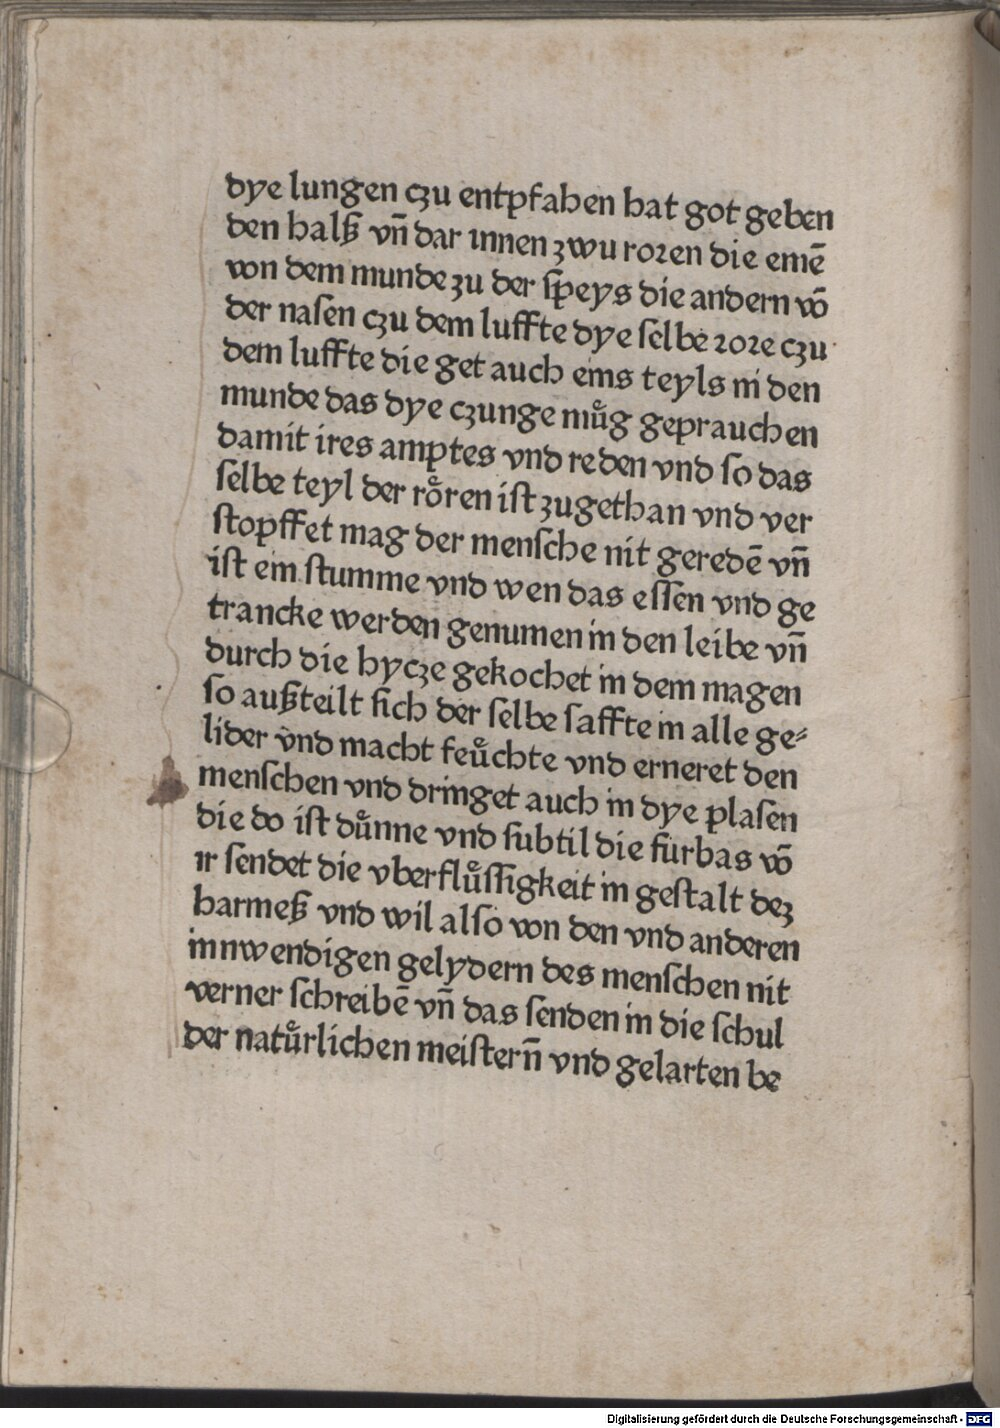 dye lungen czu entpfahen hat got geben
den halß vn̄ dar ınnen zwu roꝛen die eınē
von dem munde zu der ſpeys die andern vō
der naſen czu dem luffte dye ſelbe ꝛoꝛe czu
dem luffte die get auch eins teyls in den
munde das dye czunge muͦg geprauchen
damit ires amptes vnd reden vnd ſo das
ſelbe teyl der roͤren iſt zugethan vnd ver
ſtopffet mag der menſche nit geredē vn̄
iſt ein ſtumme vnd wen das eſſen vnd ge
trancke werden genumen in den leibe vn̄
durch die hycze gekochet in dem magen
ſo außteilt ſich der ſelbe ſaffte in alle ge⸗
lider vnd macht feuͤchte vnd erneret den
menſchen vnd dringet auch in dye plaſen
die do iſt duͤnne vnd ſubtil die furbas vō
ır ſendet die vberfluͤſſigkeit in geſtalt dez
harmeß vnd wil alſo von den vnd anderen
innwendigen gelydern des menſchen nit
verner ſchreibē vn̄ das ſenden in die ſchul
der natuͤrlichen meiſtern̄ vnd gelarten be
Digitalisierung gefördert durch die Deutsche Forschungsgemeinschaft - DFG